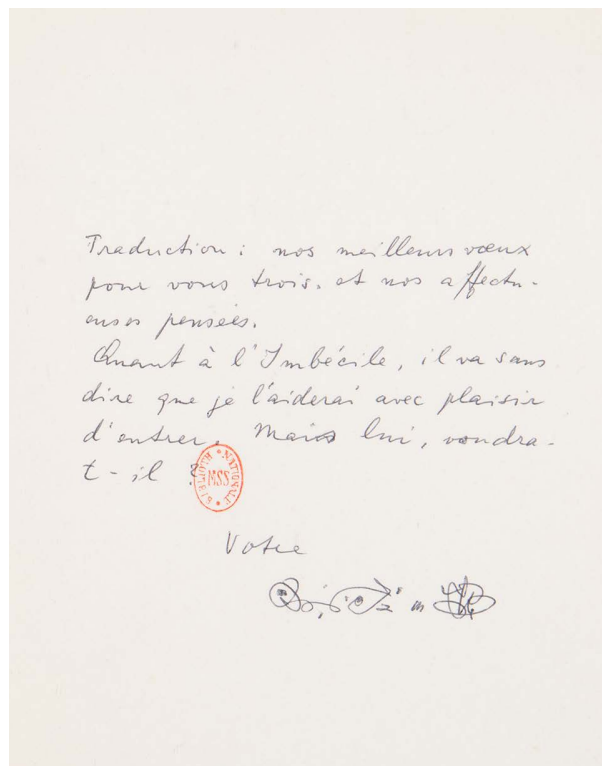 Traduction : nos meilleurs vœux
pour vous trois. et nos affectu-
euses pensées.
Quant à l'Imbécile, il va sans
dire que je l'aiderai avec plaisir
d'entrer. Mais lui, voudra-
t-il ?
BIBLIOTH NATIONALE
MSS
Votre